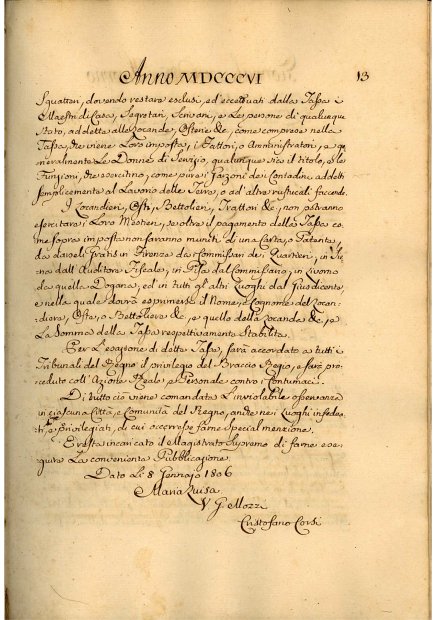 Anno MDCCCVI 13
Squatteri, dovendo restare esclusi, ed eccettuati dalla Tassa i
Maestri di Casa, Segretari, Scrivani, e Le persone di qualunque
Stato, addette alle Locande, Osterie &c, come comprese nella
Tassa, che viene Loro imposta, i Fattori, e Amministratori, e ge
neralmente Le Donne di Servizio, qualunque sia il titolo, e Le
Funzioni, che esercitino, come pure i Garzoni dei Contadini addetti
semplicemente al Lavoro delle Terre, o ad altre rusticali faccende.
I Locandieri, Osti, Bettolieri, Trattori &c, non potranno
esercitare i Loro Mestieri, se oltre il pagamento della Tassa co
me sopra imposta non saranno muniti di una Carta, o Patente
da darseli Gratis in Firenze dai Commissari dei Quartieri, in Sie
na dall' Auditore Fiscale, in Pisa dal Commissario, in Livorno
da quella Dogana, ed in tutti gli altri Luoghi dal Giusdicente,
e nella quale dovrà esprimersi il Nome, e Cognome del Locan:
diere, Oste, o Bettoliere &c, e quello della Locanda &c, e
La Somma della Tassa respettivamente Stabilita.
Per L'esazione di detta Tassa, sarà accordato a tutti i
Tribunali del Regno il privilegio del Braccio Regio, e sarà pro:
ceduto coll' Azione Reale, e Personale contro i Contumaci.
Di tutto ciò viene comandata L'inviolabile osservanza
in ciascuna Città, e Comunità del Regno, anche nei Luoghi infeda
ti, e Privilegiati, di cui occorresse farne special menzione.
E resta incaricato il Magistrato Supremo di farne ese:
guire La conveniente Pubblicazione.
Dato Li 8 Gennajo 1806
Maria Luisa.
V G Mozzi
Cristofano Corsi